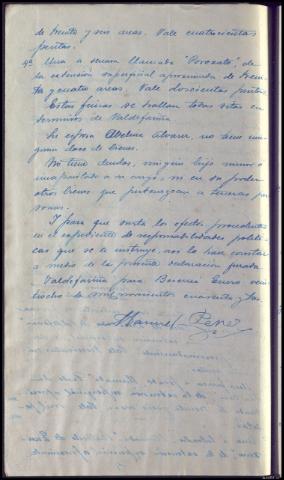 de treinta y seis areas. Vale cuatrocientas
pesetas.
4ª Una a denom llamado "Verozato", de
la extensión superficial aproximada de trein-
ta y cuatro areas. Vale doscientas pesetas
Estas fincas se hallan todas sitas en
terminos de Valdefariña
Su esposa Abelina Alvarez, no tiene nin-
guna clase de bienes.
No tiene deudas, ningún hijo menor o
incapacitado a su cargo, ni en su poder
otros bienes que pertenezcan a terceras per
sonas.
Y para que surta los efectos procedentes
en el expediente de responsabilidades politi-
cas que se le instruye, así lo hace constar
a medio de la presente declaración jurada
Valdefariña para Becerreá Enero vein
tiocho de mil novecientos cuarenta y tres.
Manuel Perez